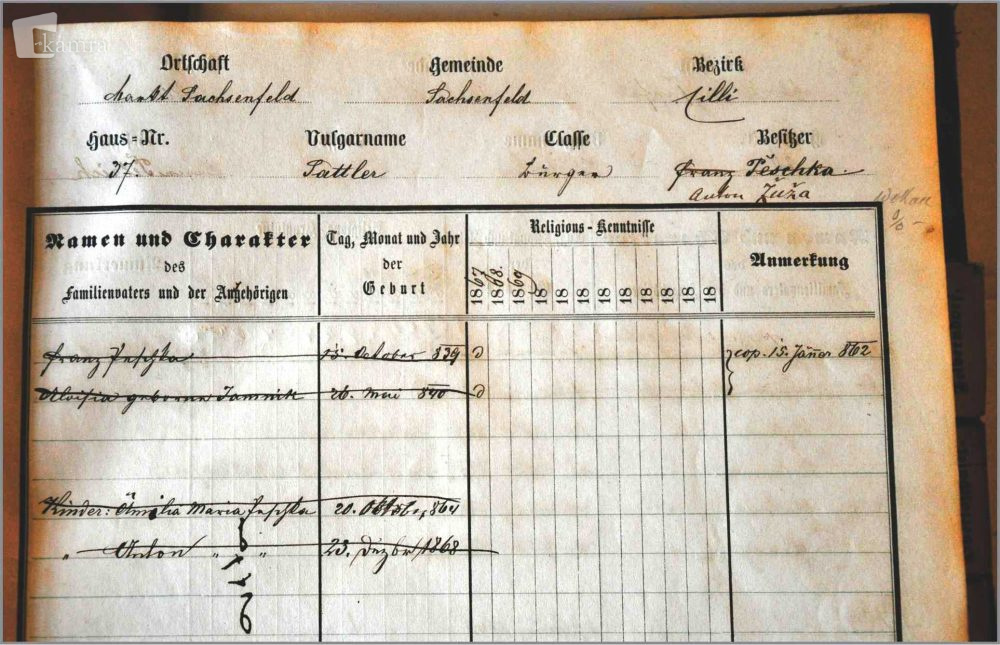 kamra
Ortschaft Gemeinde Bezirk
Markt Sachsenfeld Sachsenfeld Cilli
Haus-Nr. Vulgarname Classe Besitzer
37 Sattler Bürger Franz Peschka
Anton Žuža
Namen und Charakter Tag, Monat und Jahr Religions-Kenntnisse
des der Anmerkung
Familienvaters und der Angehörigen Geburt 1867 1868. 1869 18 18 18 18 18 18 18 18
Franz Peschka 15. October 839 cop. 15. Jänner 862
Aloisia geborne Jamnik 26. Mai 840
Kinder: Ämilia Maria Peschka 20. Oktob. 864
" Anton " " 23. Dezbr 1868